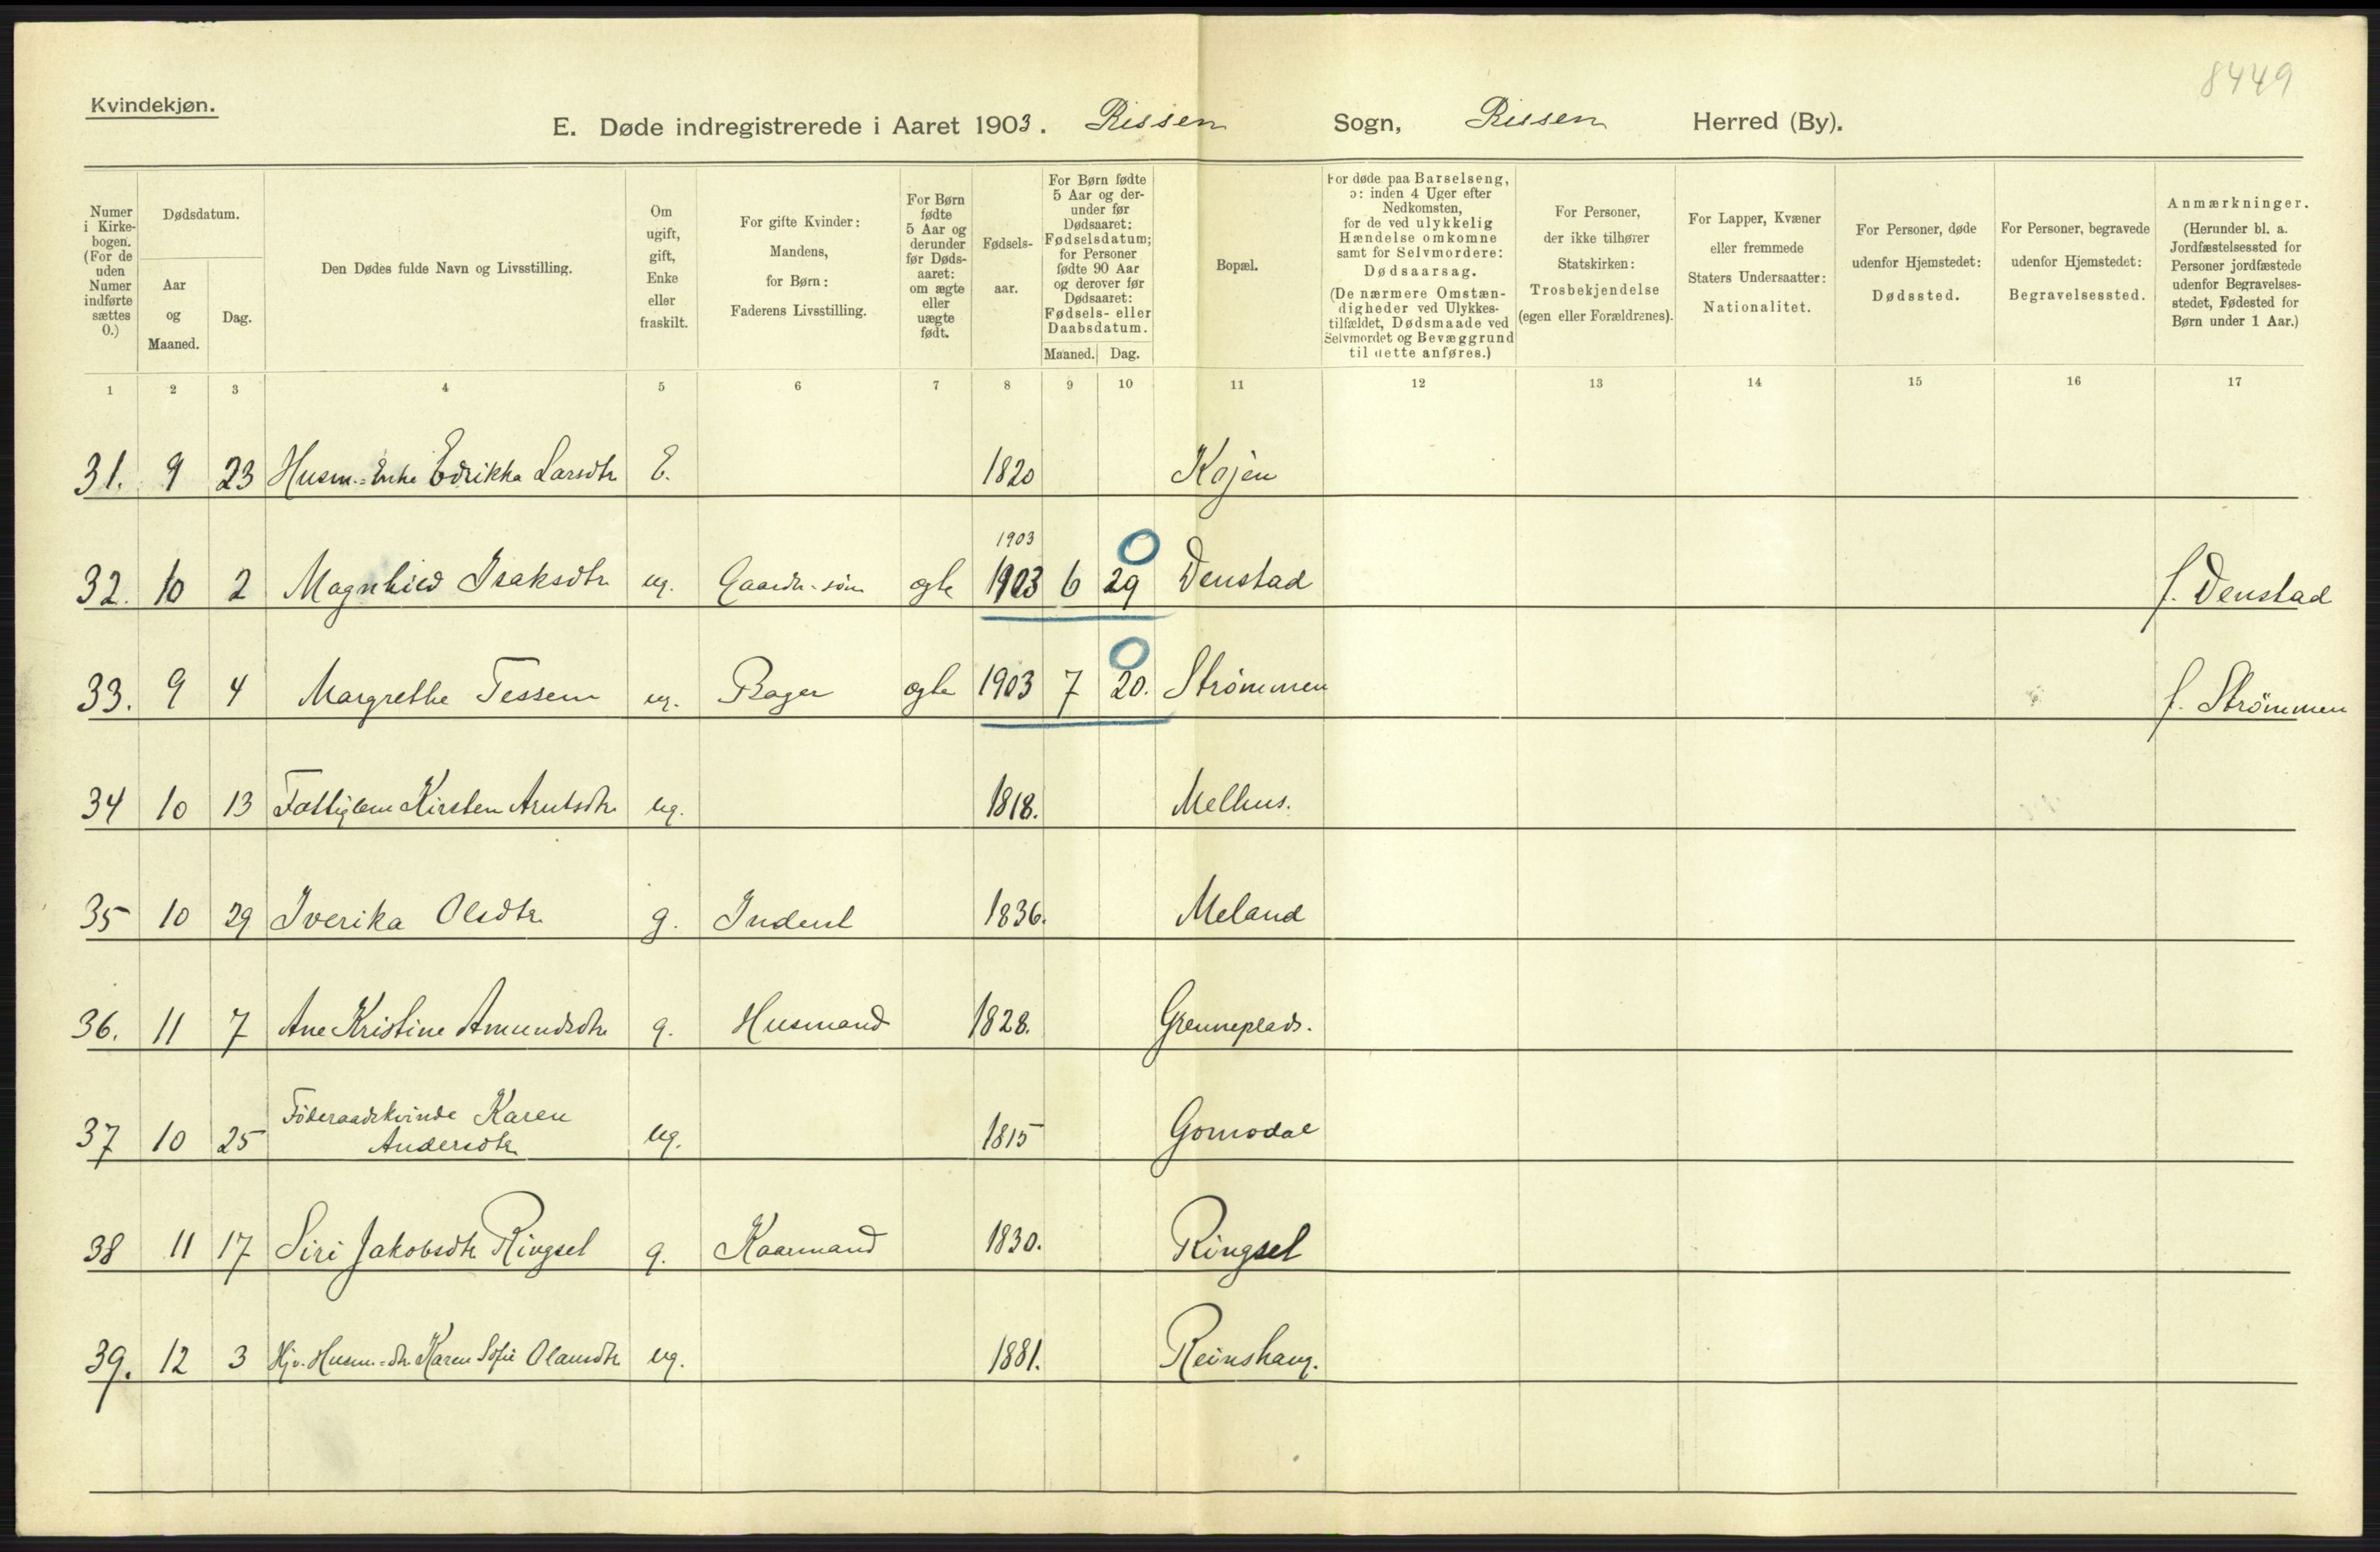 8449
Kvindekjøn.
E. Døde indregistrerede i Aaret 1903. Rissen Sogn, Rissen Herred (By).
Numer i Kirke-bogen. (For de uden Numer indførte sættes 0.)
Dødsdatum.
Aar og Maaned.
Dag.
Den Dødes fulde Navn og Livsstilling.
Om ugift, gift, Enke eller fraskilt.
For gifte Kvinder: Mandens, for Børn: Faderens Livsstilling.
For Børn fødte 5 Aar og derunder før Døds-aaret: om ægte eller uægte født.
Fødsels-aar.
For Børn fødte 5 Aar og der-under før Dødsaaret: Fødselsdatum; for Personer fødte 90 Aar og derover før Dødsaaret: Fødsels- eller Daabsdatum.
Maaned. Dag.
Bopæl.
For døde paa Barselseng, ɔ: inden 4 Uger efter Nedkomsten, for de ved ulykkelig Hændelse omkomne samt for Selvmordere: Dødsaarsag. (De nærmere Omstæn-digheder ved Ulykkes-tilfældet, Dødsmaade ved Selvmordet og Bevæggrund til dette anføres.)
For Personer, der ikke tilhører Statskirken: Trosbekjendelse (egen eller Forældrenes).
For Lapper, Kvæner eller fremmede Staters Undersaatter: Nationalitet.
For Personer, døde udenfor Hjemstedet: Dødssted.
For Personer, begravede udenfor Hjemstedet: Begravelsessted.
Anmærkninger. (Herunder bl. a. Jordfæstelsessted for Personer jordfæstede udenfor Begravelses-stedet, Fødested for Børn under 1 Aar.)
1 2 3 4 5 6 7 8 9 10 11 12 13 14 15 16 17
31. 9 23 Husm.=Enke Edrikka Larsdtr E. 1820 Kojen
1903 0
32. 10 2 Magnhild Isaksdtr ug. Gaardr.-søn ægte 1903 6 29 Denstad f. Denstad
0
33. 9 4 Margrethe Tessem ug. Bager ægte 1903 7 20. Strømmen f. Strømmen
34 10 13 Fattiglem Kirsten Arntsdtr ug. 1818. Melhus.
35 10 29 Iverika Olsdtr g. Inderst 1836. Meland
36. 11 7 Ane Kristine Amundsdtr g. Husmand 1828. Grenneplads.
Föderaadskvinde Karen
37 10 25 Andersdtr ug. 1815
38 11 17 Siri Jakobsdtr Ringsel g. Kaarmand 1830. Ringsel
39. 12 3 Hjv. Husm.=dtr Karen Sofie Olausdtr ug. 1881. Reinshaug.